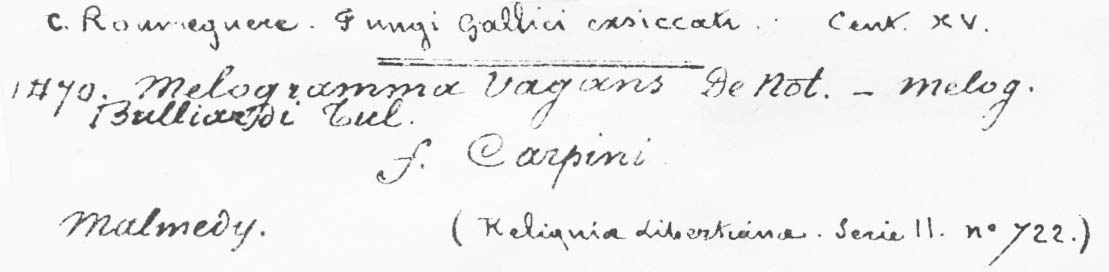 C. Roumeguere. Fungi Gallici exsiccati. Cent. XV.
1470. Melogramma Vagans De Not. - Melog.
Bulliardi Tul.
f. Carpini
Malmedy. (Reliquia Libertiana. Serie II. n° 722.)